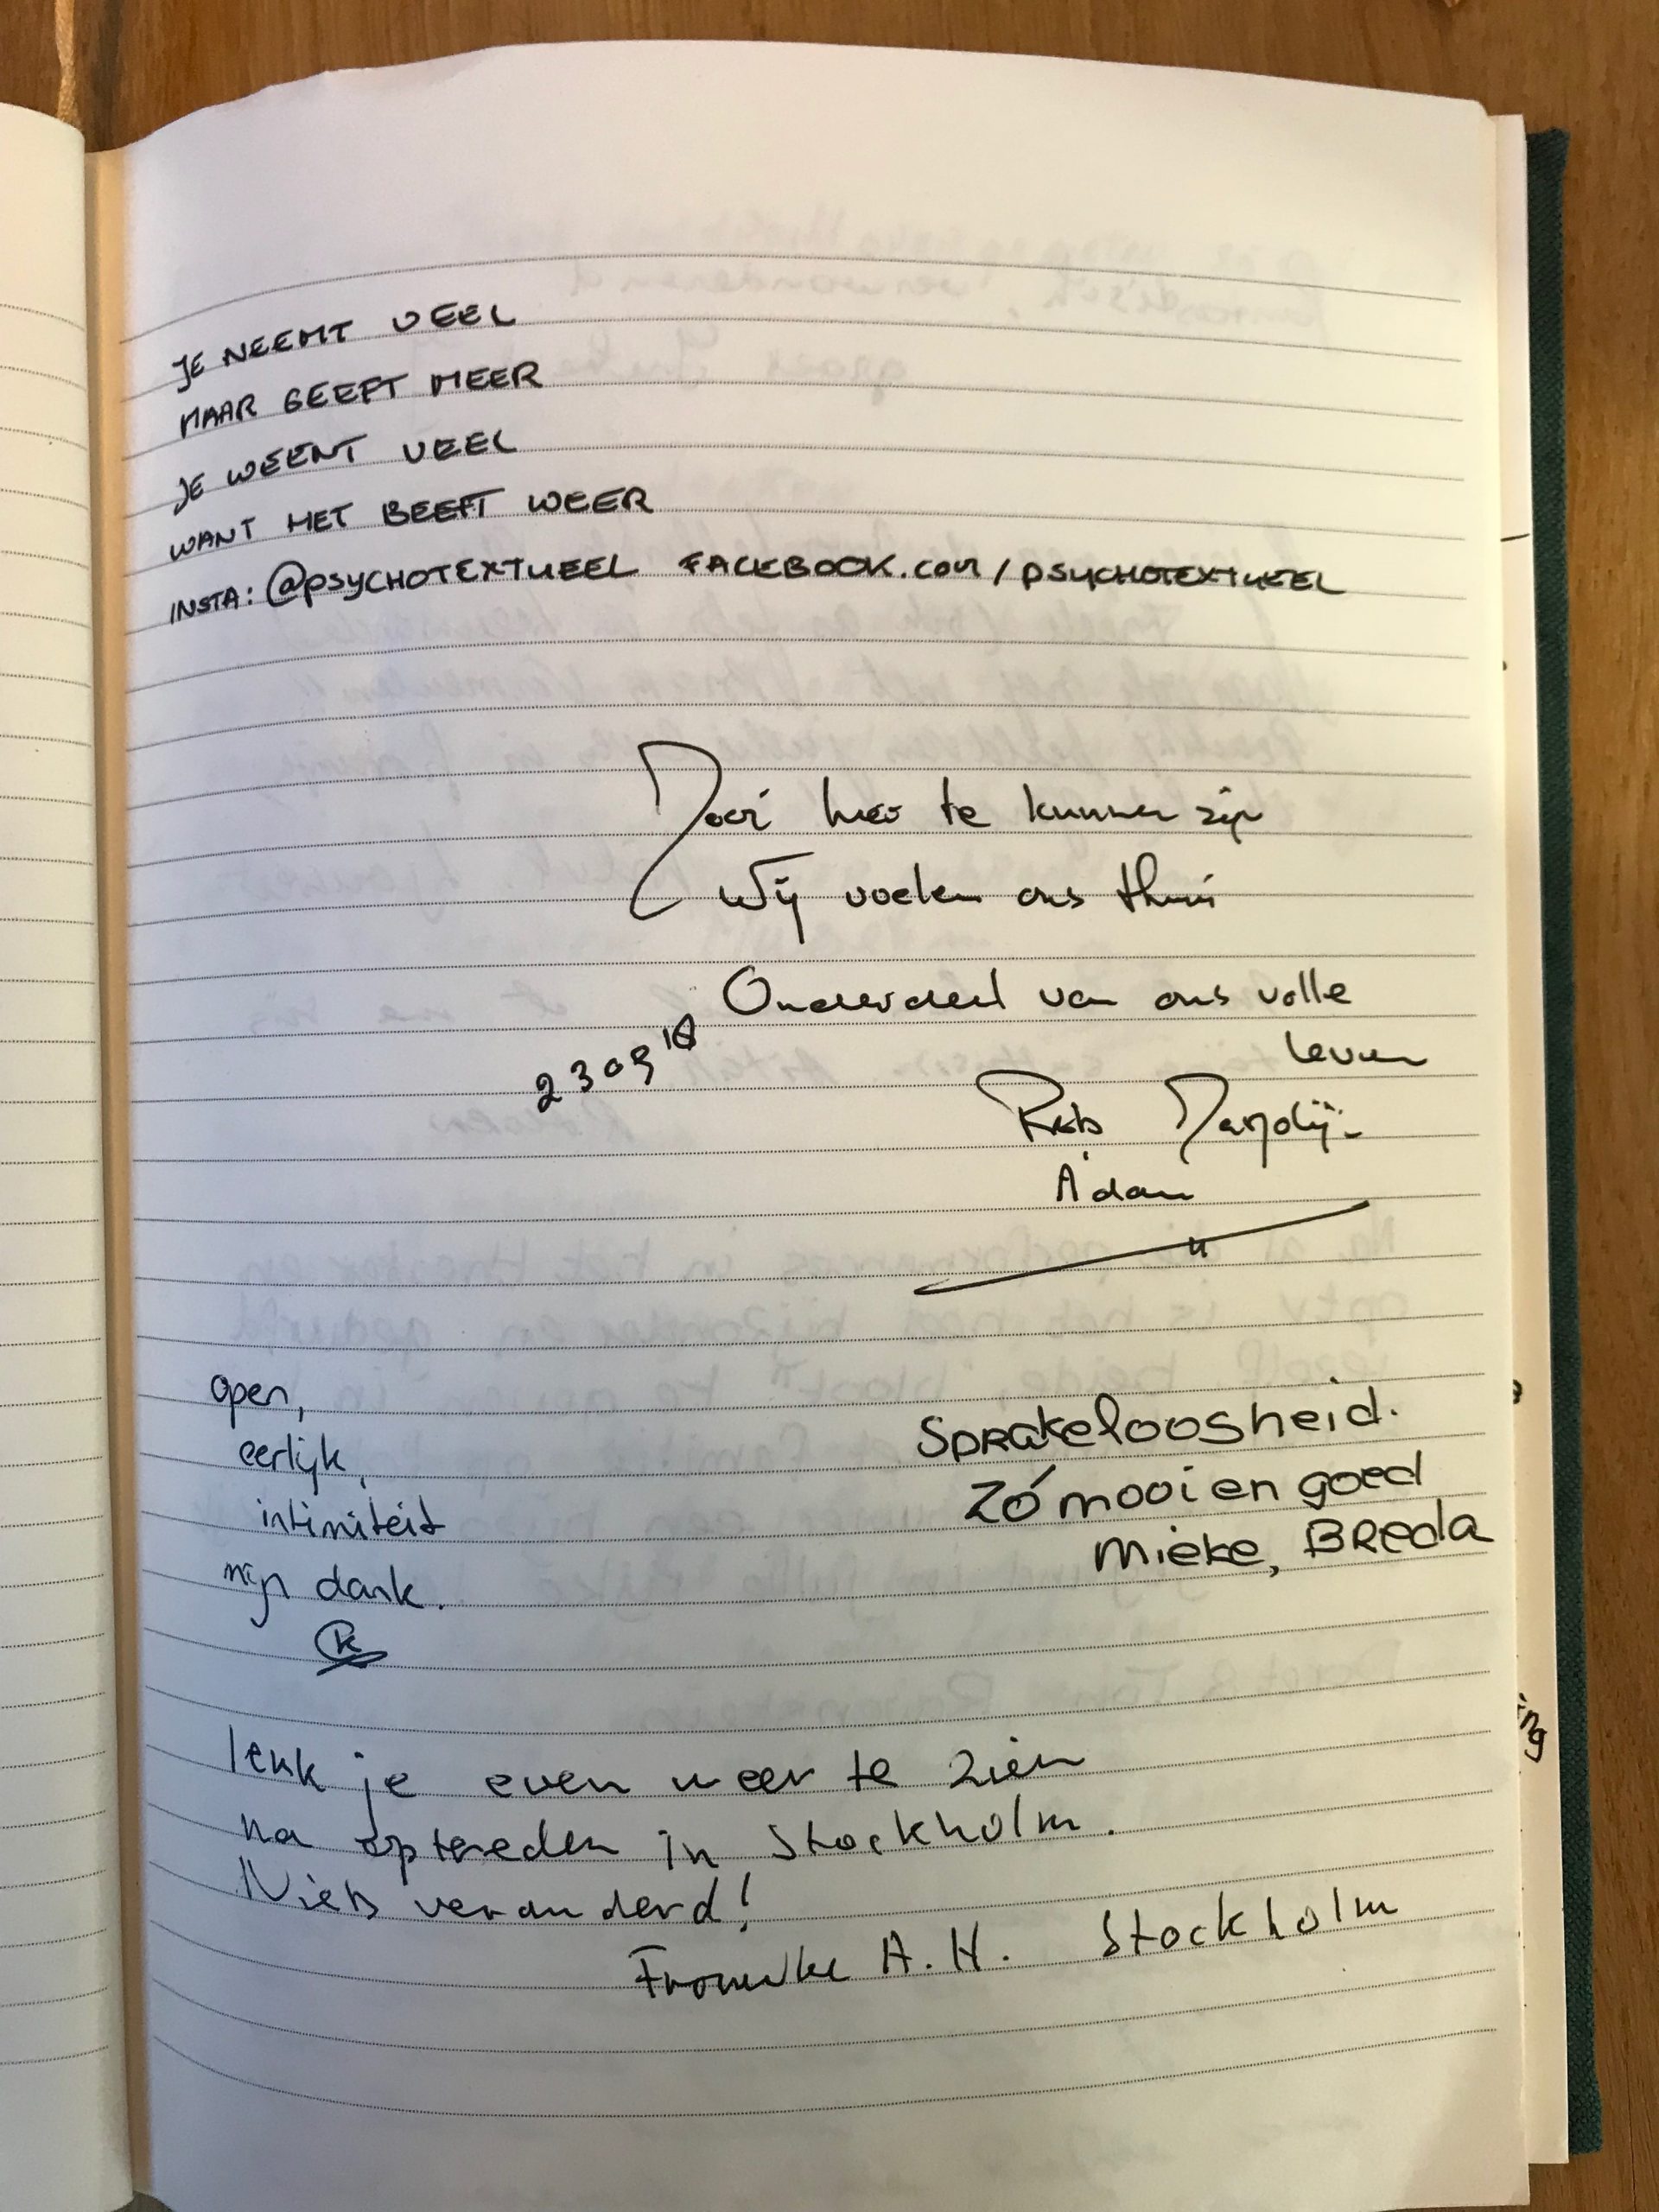 JE NEEMT VEEL
MAAR GEEFT MEER
JE WEENT VEEL
WANT HET BEEFT WEER
INSTA: @PSYCHOTEXTUEEL FACEBOOK.COM/PSYCHOTEXTUEEL
hier te kunnen zijn
Wij voelen ons thuis
Onderdeel van ons volle
leven
230918
Rob
A'dam
open,
eerlijk,
intimiteit
mijn dank.
Sprakeloosheid.
Zó mooi en goed
Mieke, BReda
leuk je even weer te zien
na optreden in Stockholm.
Niets veranderd!
A.H. Stockholm